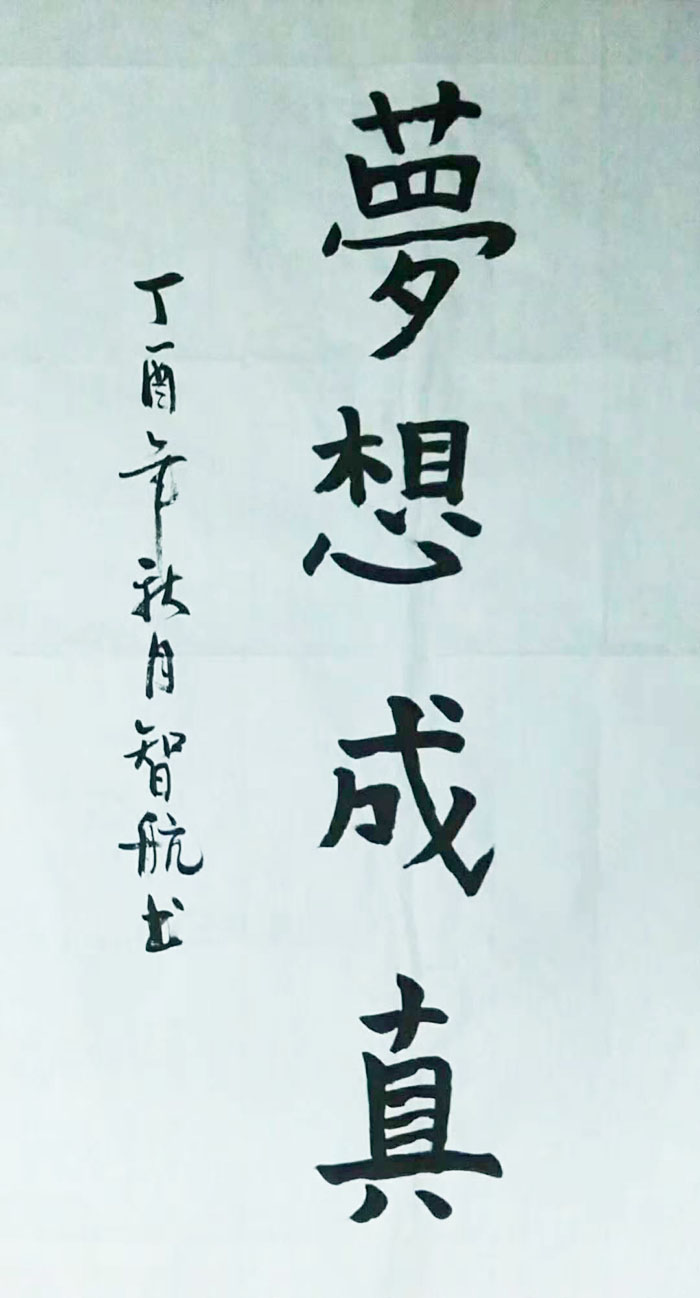 夢想成真
丁酉年秋月智航书